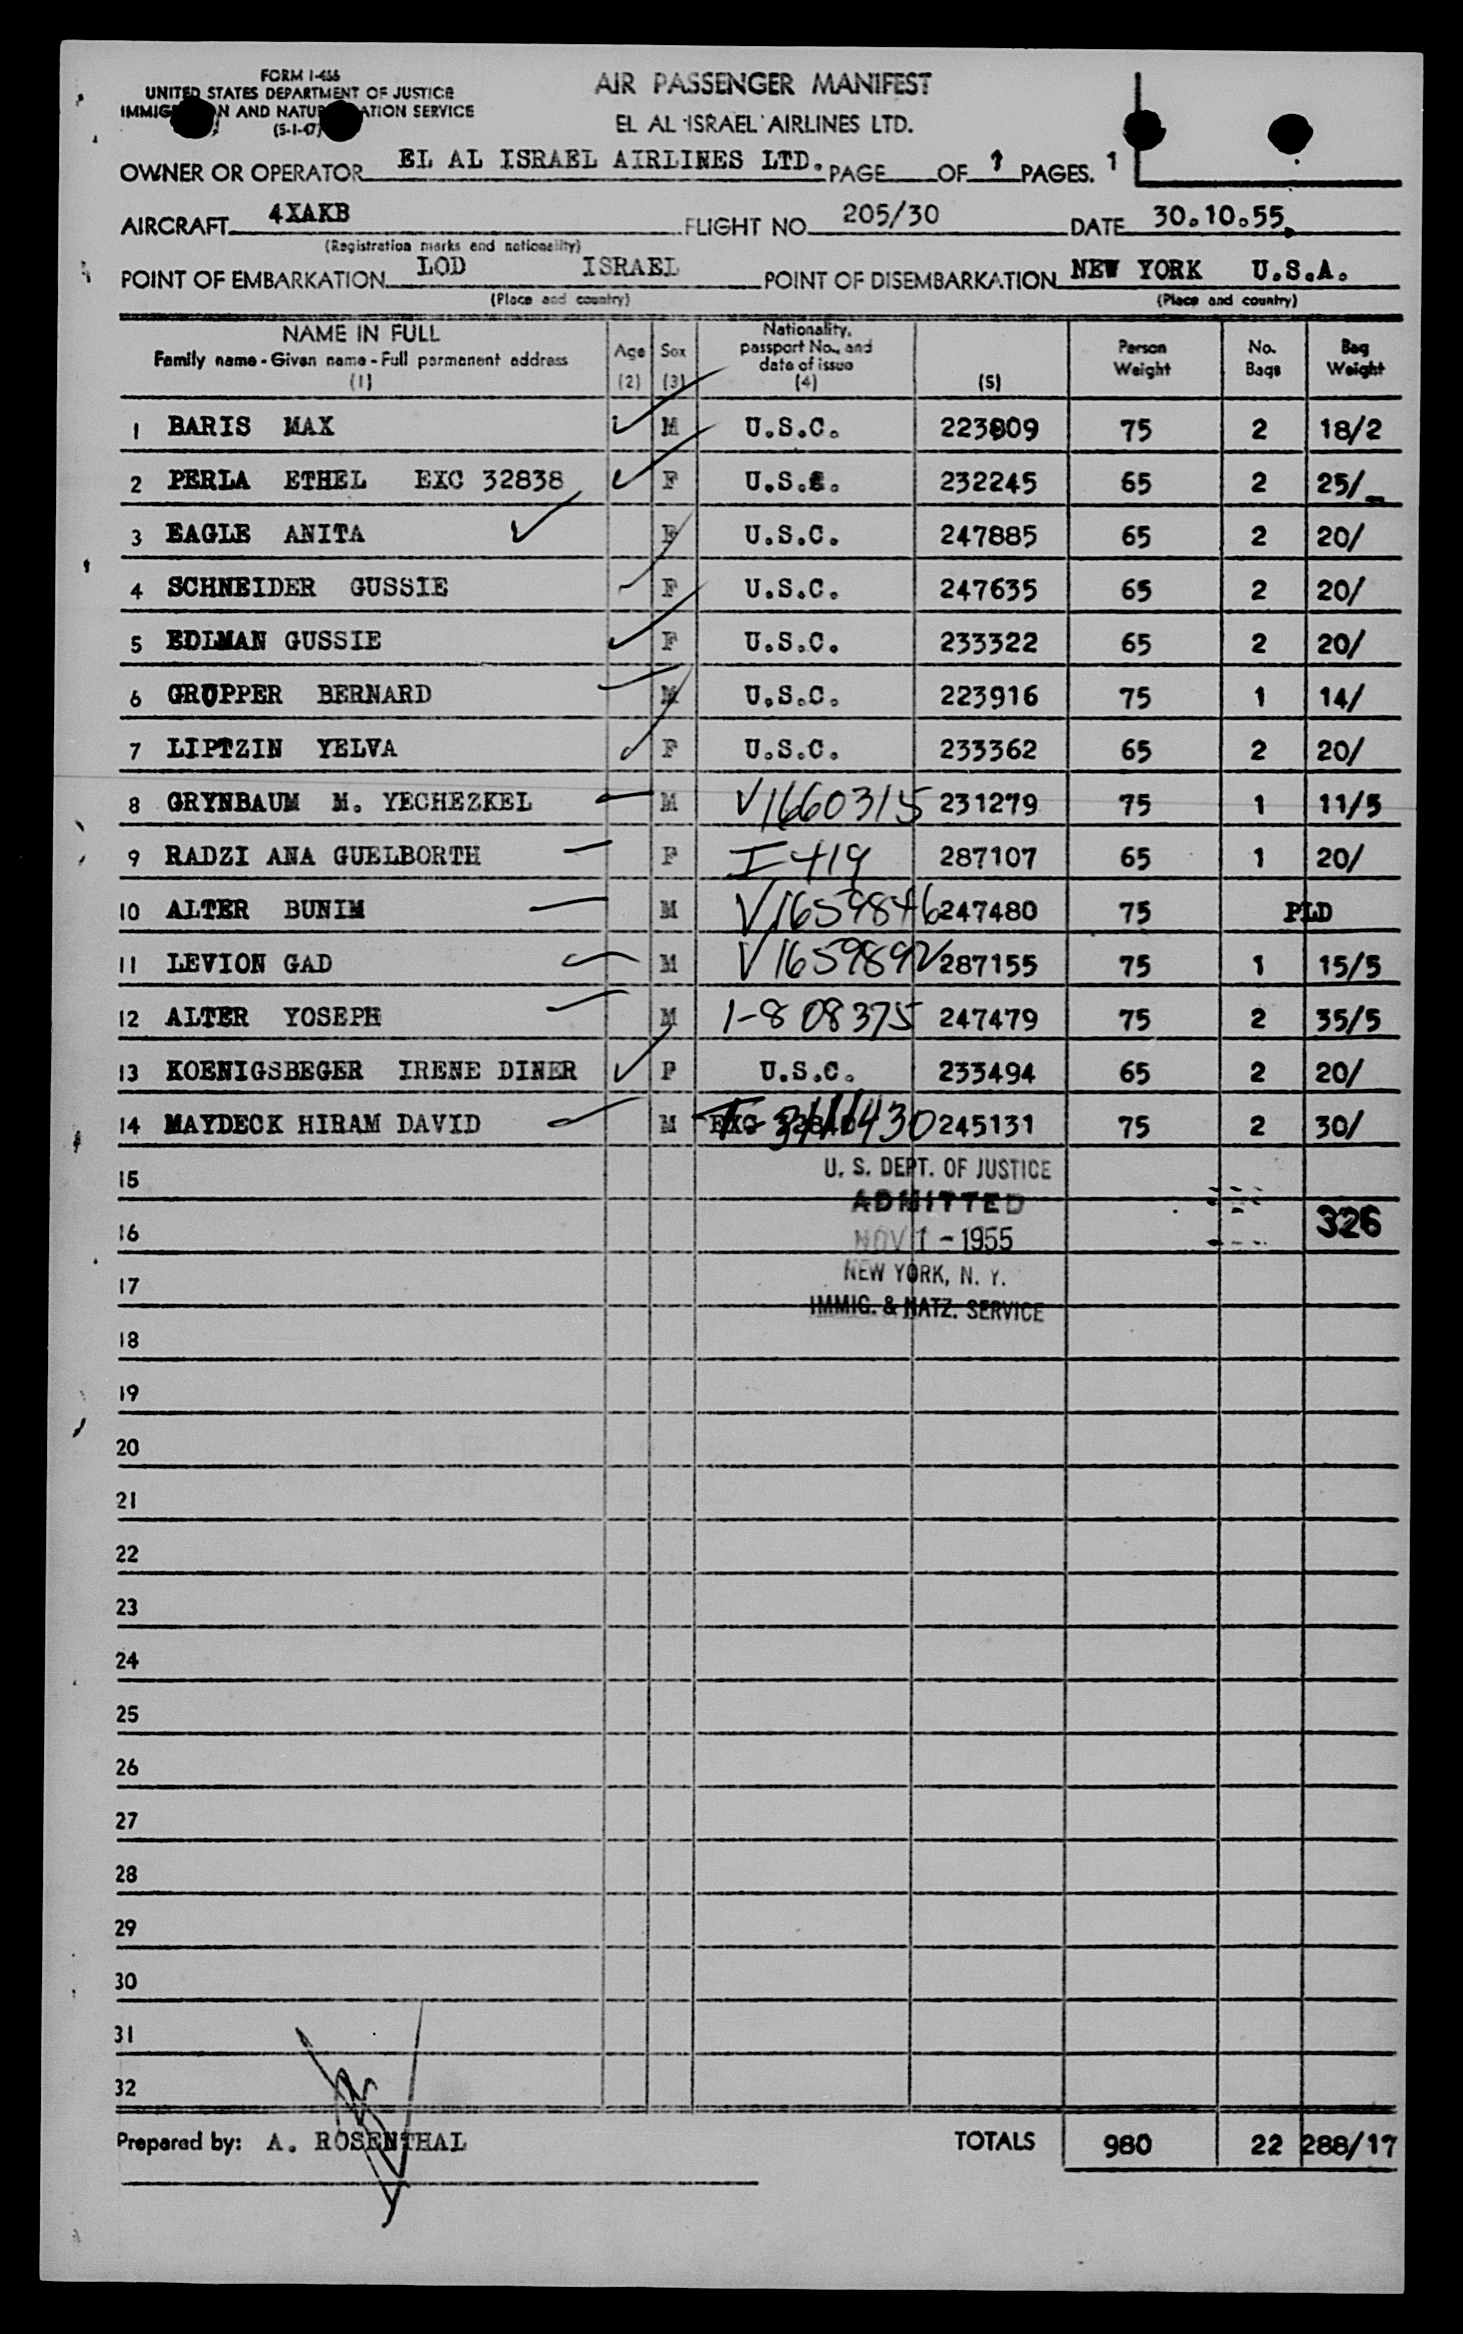 FORM I-466
UNITED STATES DEPARTMENT OF JUSTICE
IMMIG N AND NATU ATION SERVICE
(5-1-47)
AIR PASSENGER MANIFEST
EL AL ISRAEL AIRLINES LTD.
OWNER OR OPERATOR EL AL ISRAEL AIRLINES LTD. PAGE OF 1 PAGES. 1
AIRCRAFT 4XAKB FLIGHT NO. 205/30 DATE 30.10.55.
(Registration marks and nationality)
POINT OF EMBARKATION LOD ISRAEL POINT OF DISEMBARKATION NEW YORK U.S.A.
(Place and country) (Place and country)
NAME IN FULL
Family name - Given name - Full permanent address
(1)
Age
(2)
Sex
(3)
Nationality,
passport No., and
date of issue
(4)
(5)
Person
Weight
No.
Bags
Bag
Weight
1 BARIS MAX M U.S.C. 223809 75 2 18/2
2 PERLA ETHEL EXC 32838 F U.S.C. 232245 65 2 25/
3 EAGLE ANITA F U.S.C. 247885 65 2 20/
4 SCHNEIDER GUSSIE F U.S.C. 247635 65 2 20/
5 EDLMAN GUSSIE F U.S.C. 233322 65 2 20/
6 GRUPPER BERNARD M U.S.C. 223916 75 1 14/
7 LIPTZIN YELVA F U.S.C. 233362 65 2 20/
8 GRYNBAUM M. YECHEZKEL M V1660315 231279 75 1 11/5
9 RADZI ANA GUELBORTH F I-419 287107 65 1 20/
10 ALTER BUNIM M V1659846 247480 75 PLD
11 LEVION GAD M V1659892 287155 75 1 15/5
12 ALTER YOSEPH M 1-808375 247479 75 2 35/5
13 KOENIGSBEGER IRENE DINER F U.S.C. 233494 65 2 20/
14 MAYDECK HIRAM DAVID M EXC 245131 75 2 30/
15
U. S. DEPT. OF JUSTICE
ADMITTED
16
NOV 1 - 1955
326
17
NEW YORK, N. Y.
IMMIG. & NATZ. SERVICE
18
19
20
21
22
23
24
25
26
27
28
29
30
31
32
Prepared by: A. ROSENTHAL TOTALS 980 22 288/17